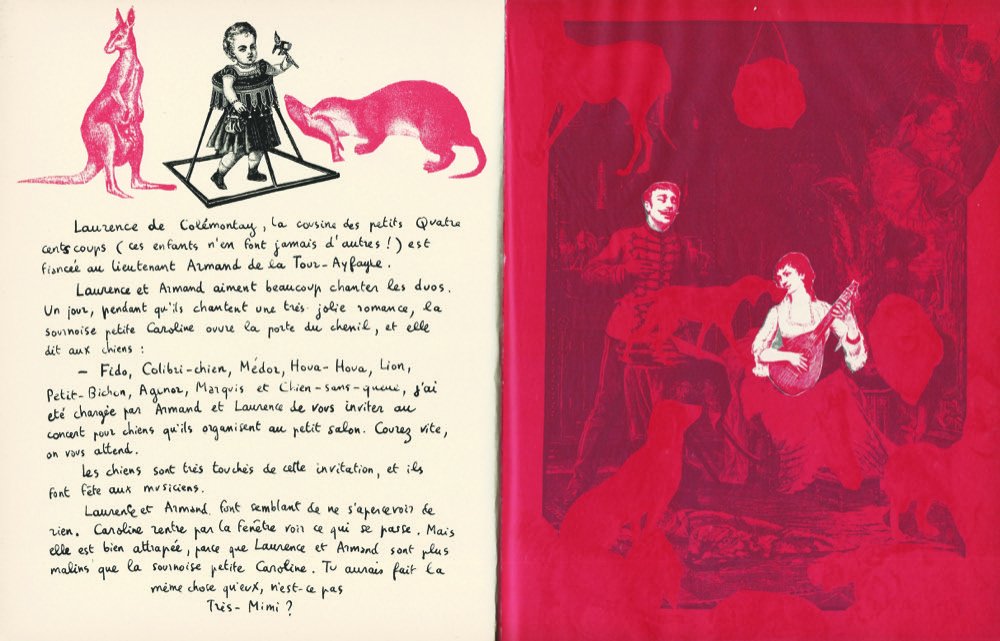 Laurence de Colémontay, la cousine des petits Quatre
cents coups (ces enfants n'en font jamais d'autres !) est
fiancée au lieutenant Armand de la Tour-Ayfagre.
Laurence et Armand aiment beaucoup chanter les duos.
Un jour, pendant qu'ils chantent une très jolie romance, la
sournoise petite Caroline ouvre la porte du chenil, et elle
dit aux chiens :
— Fido, Colibri-chien, Médor, Hova-Hova, Lion,
Petit-Bichon, Agenor, Marquis et Chien-sans-queue, j'ai
été chargée par Armand et Laurence de vous inviter au
concert pour chiens qu'ils organisent au petit salon. Courez vite,
on vous attend.
Les chiens sont très touchés de cette invitation, et ils
font fête aux musiciens.
Laurence et Armand font semblant de ne s'apercevoir de
rien. Caroline rentre par la fenêtre voir ce qui se passe. Mais
elle est bien attrapée, parce que Laurence et Armand sont plus
malins que la sournoise petite Caroline. Tu aurais fait la
même chose qu'eux, n'est-ce pas
Très-Mimi ?